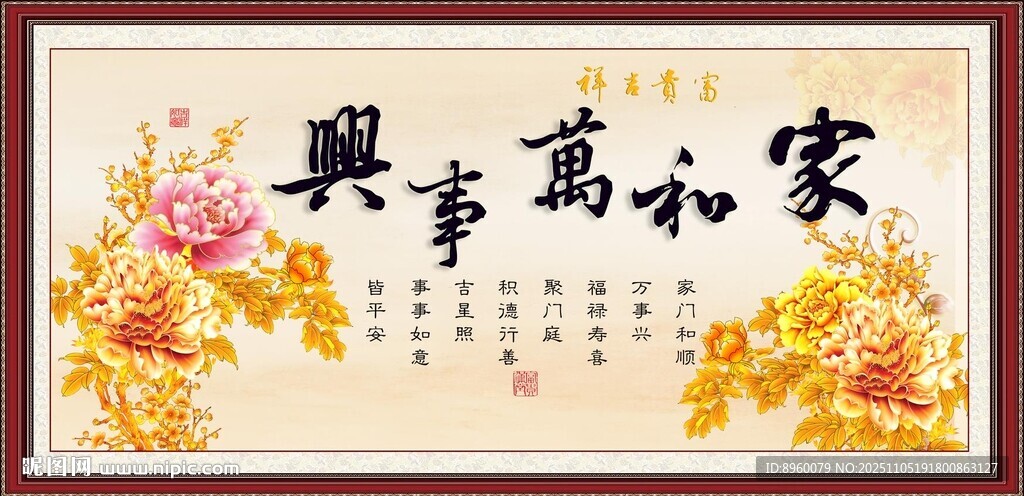 富貴吉祥
家和萬事興
家门和顺
万事兴
福禄寿喜
聚门庭
积德行善
吉星照
事事如意
皆平安
昵图网 www.nipic.com
ID:8960079 NO:20251105191800863127